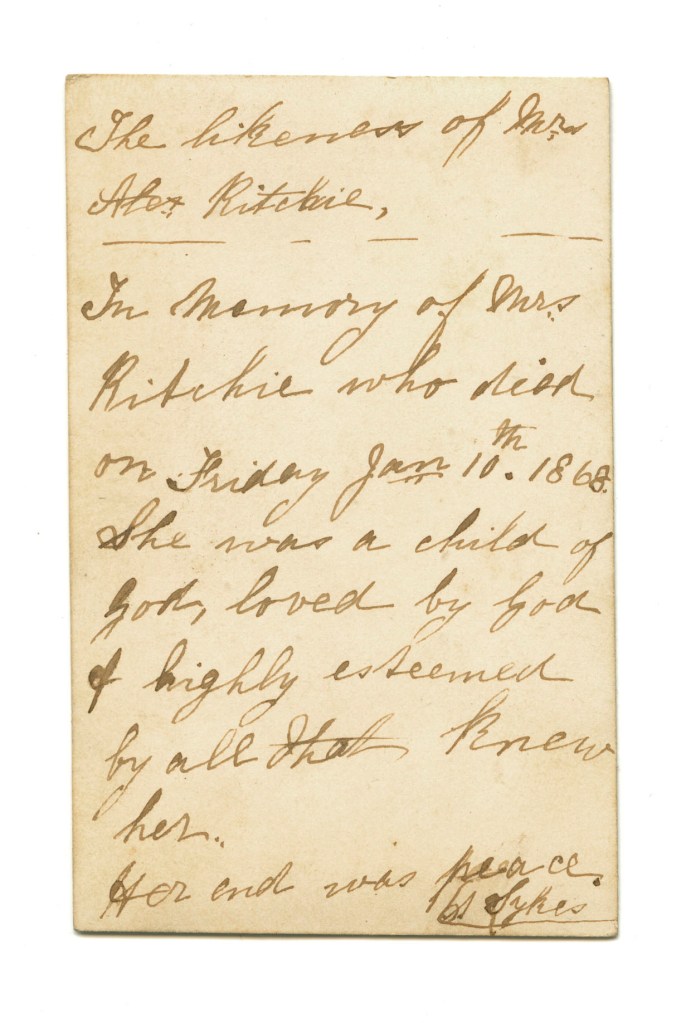 The likeness of Mrs
Alex Ritchie,
In Memory of Mrs
Ritchie who died
on Friday Jan 10th. 1868.
She was a child of
God, loved by God
& highly esteemed
by all that knew
her.
Her end was peace.
Sykes